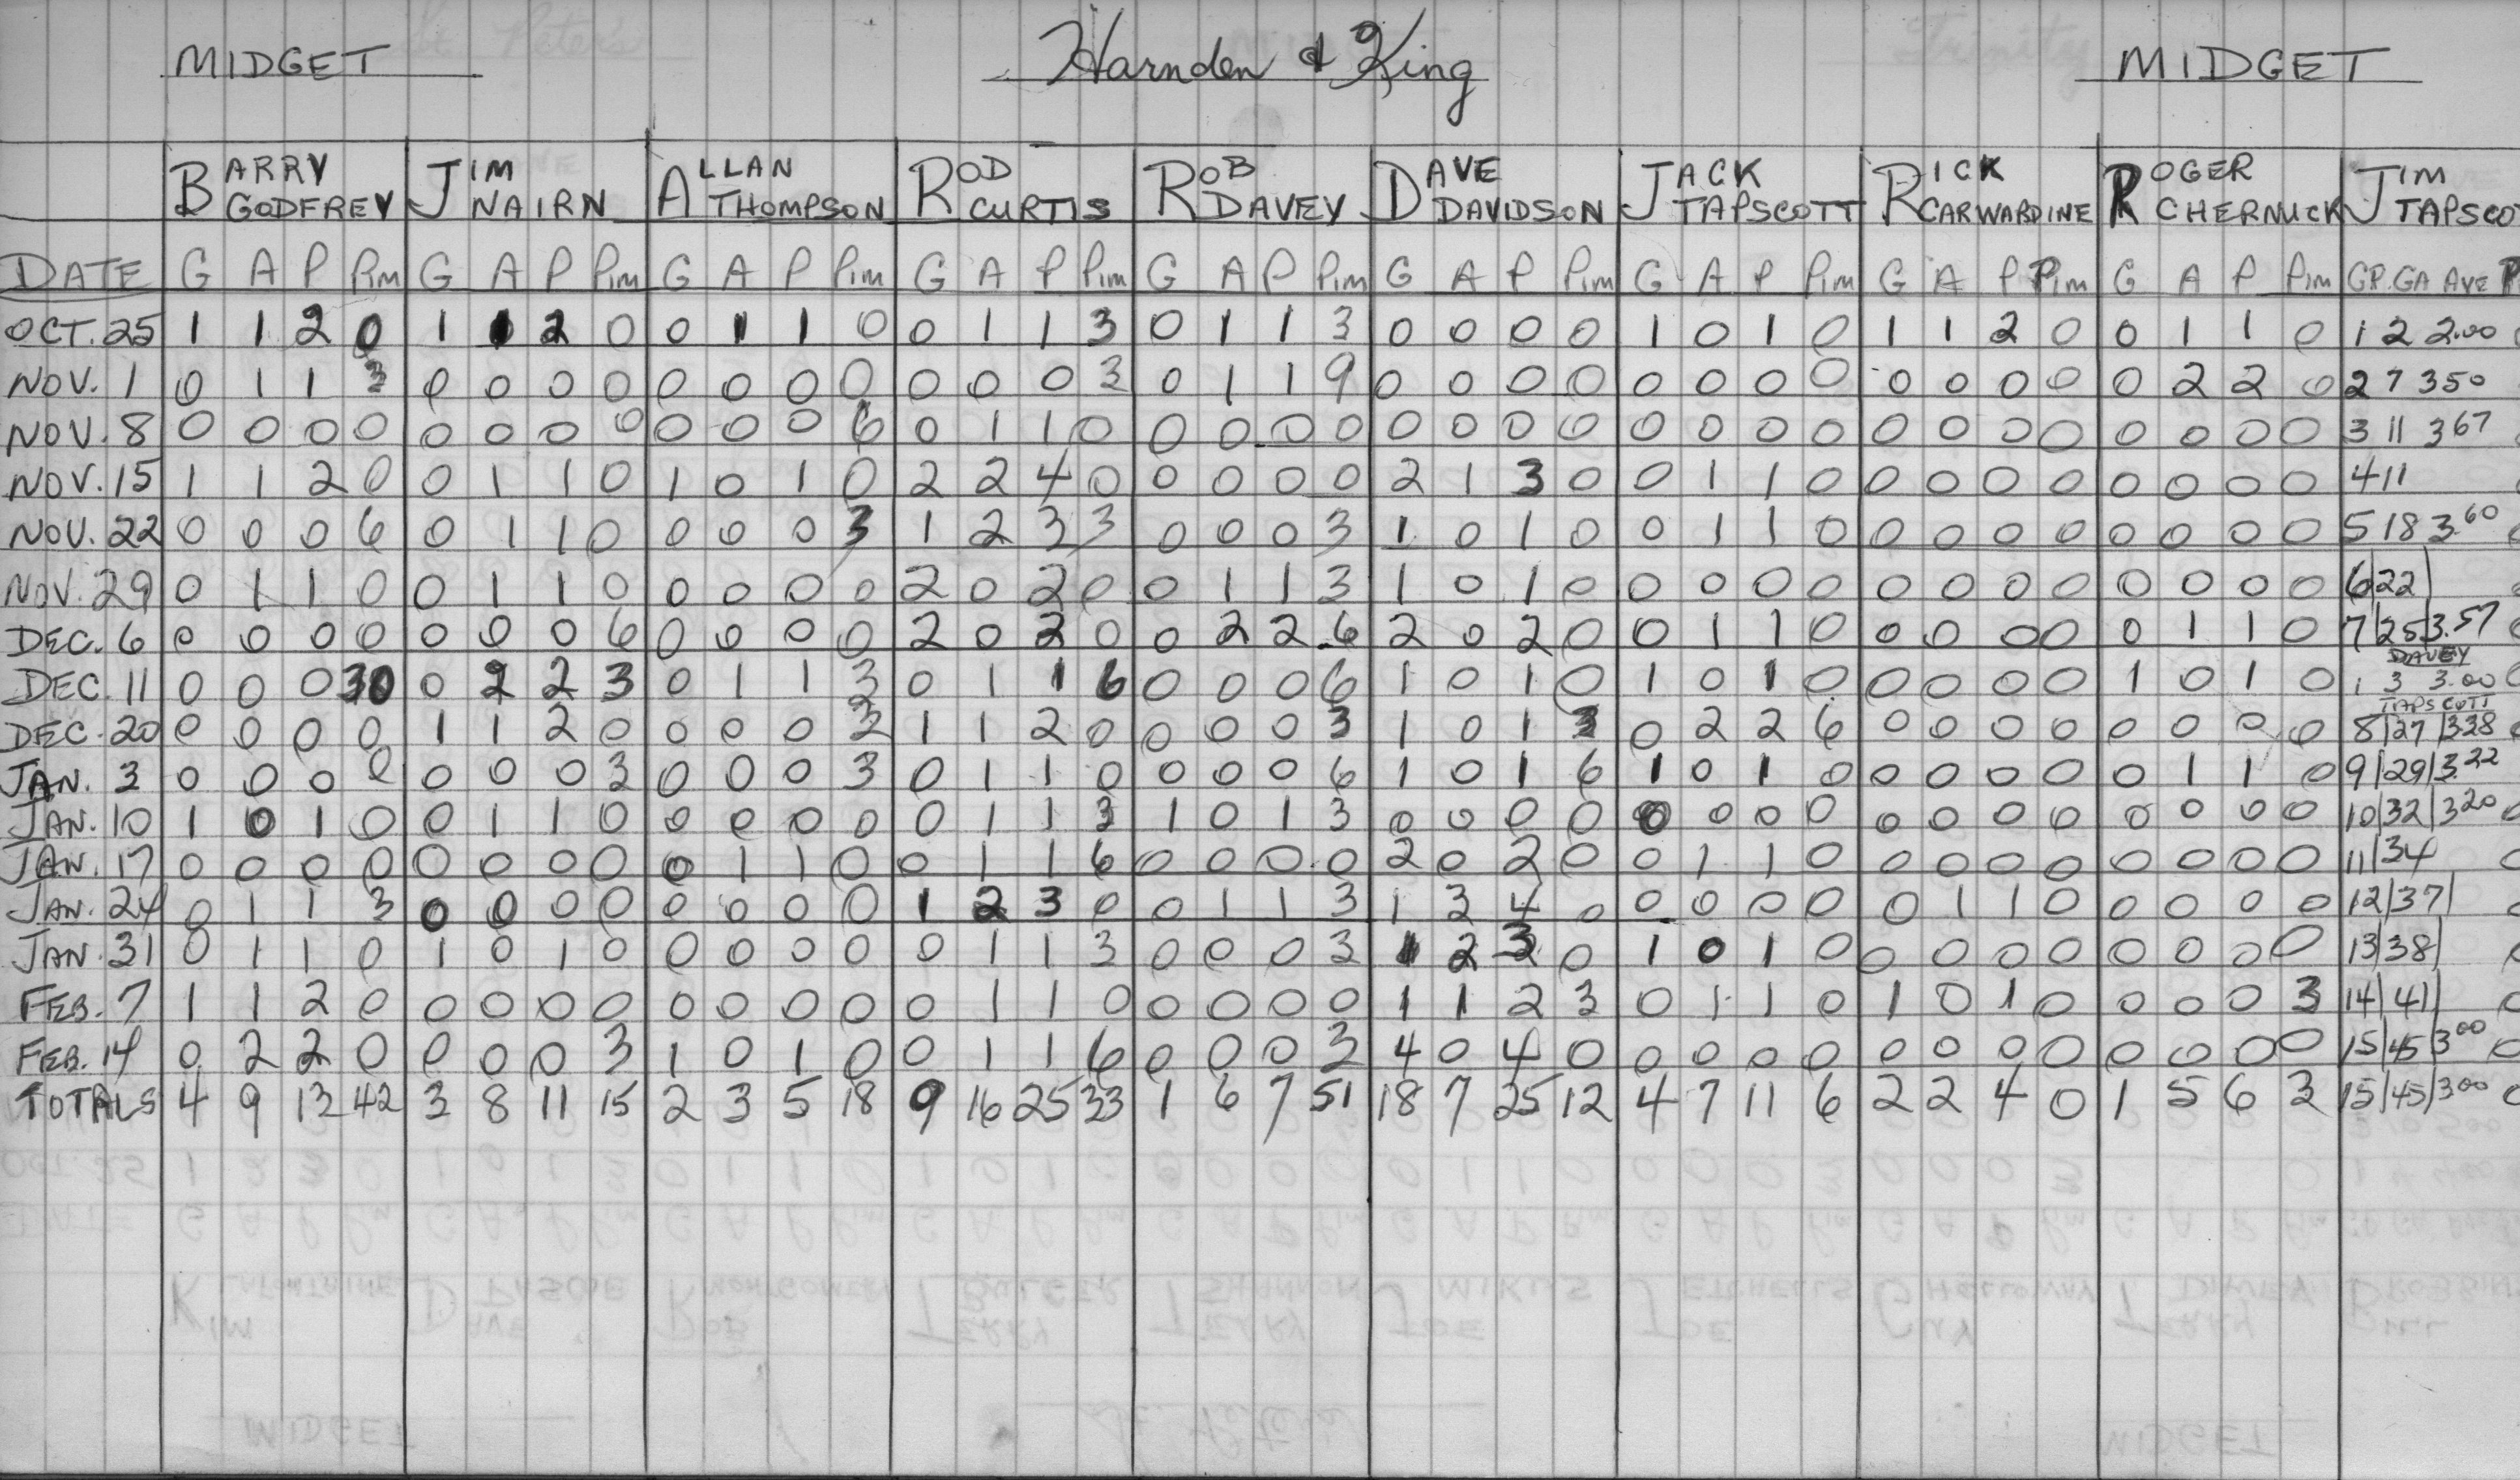 MIDGET Harnden & King MIDGET
BARRY GODFREY JIM NAIRN ALLAN THOMPSON ROD CURTIS ROB DAVEY DAVE DAVIDSON JACK TAPSCOTT RICK CARWARDINE ROGER CHERNICK JIM TAPSCOT
DATE G A P Pim G A P Pim G A P Pim G A P Pim G A P Pim G A P Pim G A P Pim G A P Pim G A P Pim GP. GA AVE P
OCT. 25 1 1 2 0 1 1 2 0 0 1 1 0 0 1 1 3 0 1 1 3 0 0 0 0 1 0 1 0 1 1 2 0 0 1 1 0 1 2 2.00
NOV. 1 0 1 1 3 0 0 0 0 0 0 0 0 0 0 0 3 0 1 1 9 0 0 0 0 0 0 0 0 0 0 0 0 0 2 2 0 2 7 350
NOV. 8 0 0 0 0 0 0 0 0 0 0 0 6 0 1 1 0 0 0 0 0 0 0 0 0 0 0 0 0 0 0 0 0 0 0 0 0 3 11 367
NOV. 15 1 1 2 0 0 1 1 0 1 0 1 0 2 2 4 0 0 0 0 0 2 1 3 0 0 1 1 0 0 0 0 0 0 0 0 0 4 11
NOV. 22 0 0 0 6 0 1 1 0 0 0 0 3 1 2 3 3 0 0 0 3 1 0 1 0 0 1 1 0 0 0 0 0 0 0 0 0 5 18 3.60
NOV. 29 0 1 1 0 0 1 1 0 0 0 0 0 2 0 2 0 0 1 1 3 1 0 1 0 0 0 0 0 0 0 0 0 0 0 0 0 6|22|
DEC. 6 0 0 0 0 0 0 0 6 0 0 0 0 2 0 2 0 0 2 2 6 2 0 2 0 0 1 1 0 0 0 0 0 0 1 1 0 7|25|3.57
DAVEY
DEC. 11 0 0 0 30 0 2 2 3 0 1 1 3 0 1 1 6 0 0 0 6 1 0 1 0 1 0 1 0 0 0 0 0 1 0 1 0 1 3 3.00
TAPSCOTT
DEC. 20 0 0 0 0 1 1 2 0 0 0 0 3 1 1 2 0 0 0 0 3 1 0 1 3 0 2 2 6 0 0 0 0 0 0 0 0 8|27|338
JAN. 3 0 0 0 0 0 0 0 3 0 0 0 3 0 1 1 0 0 0 0 6 1 0 1 6 1 0 1 0 0 0 0 0 0 1 1 0 9|29|3.22
JAN. 10 1 0 1 0 0 1 1 0 0 0 0 0 0 1 1 3 1 0 1 3 0 0 0 0 0 0 0 0 0 0 0 0 0 0 0 0 10|32|320
JAN. 17 0 0 0 0 0 0 0 0 0 1 1 0 0 1 1 6 0 0 0 0 2 0 2 0 0 1 1 0 0 0 0 0 0 0 0 0 11|34
JAN. 24 0 1 1 3 0 0 0 0 0 0 0 0 1 2 3 0 0 1 1 3 1 3 4 0 0 0 0 0 0 1 1 0 0 0 0 0 12|37|
JAN. 31 0 1 1 0 1 0 1 0 0 0 0 0 0 1 1 3 0 0 0 3 1 2 3 0 1 0 1 0 0 0 0 0 0 0 0 0 13|38|
FEB. 7 1 1 2 0 0 0 0 0 0 0 0 0 0 1 1 0 0 0 0 0 1 1 2 3 0 1 1 0 1 0 1 0 0 0 0 3 14|41|
FEB. 14 0 2 2 0 0 0 0 3 1 0 1 0 0 1 1 6 0 0 0 3 4 0 4 0 0 0 0 0 0 0 0 0 0 0 0 0 15|45|300
TOTALS 4 9 13 42 3 8 11 15 2 3 5 18 9 16 25 33 1 6 7 51 18 7 25 12 4 7 11 6 2 2 4 0 1 5 6 3 15|45|300